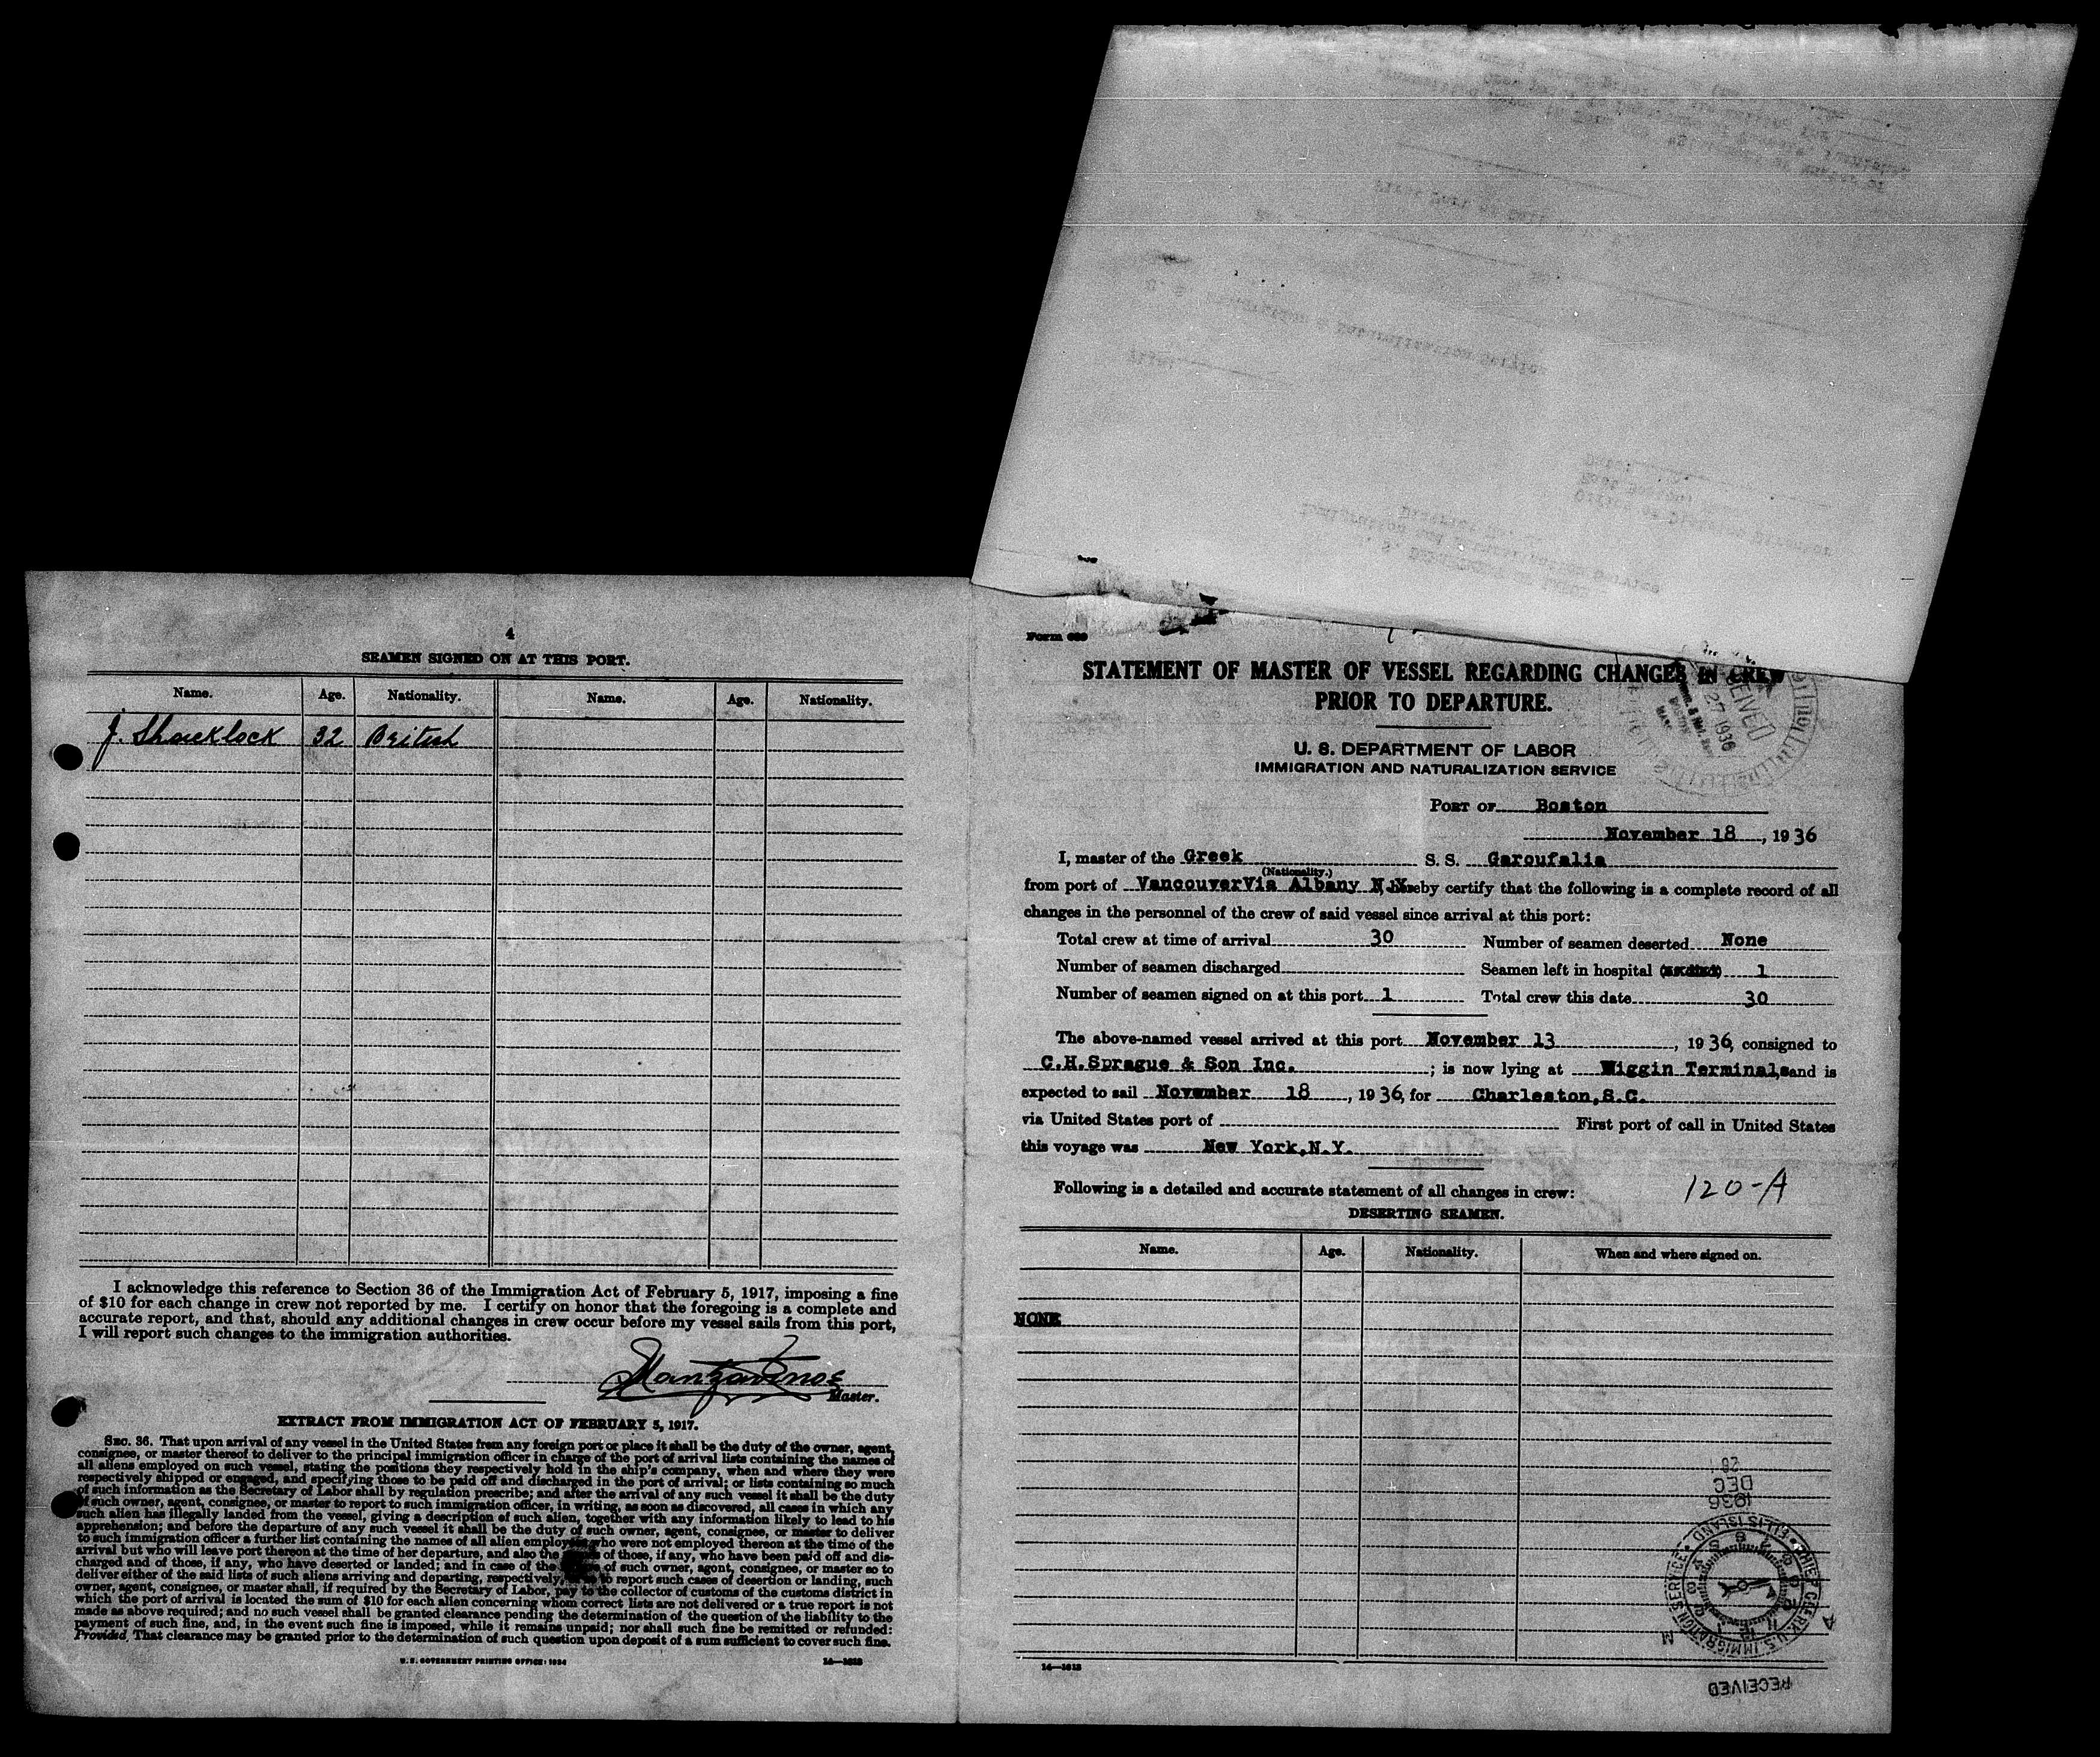 4
SEAMEN SIGNED ON AT THIS PORT.
Name. Age. Nationality. Name. Age. Nationality.
J. Shacklock 32 British
I acknowledge this reference to Section 36 of the Immigration Act of February 5, 1917, imposing a fine
of $10 for each change in crew not reported by me. I certify on honor that the foregoing is a complete and
accurate report, and that, should any additional changes in crew occur before my vessel sails from this port,
I will report such changes to the immigration authorities.
Master.
EXTRACT FROM IMMIGRATION ACT OF FEBRUARY 5, 1917.
SEC. 36. That upon arrival of any vessel in the United States from any foreign port or place it shall be the duty of the owner, agent,
consignee, or master thereof to deliver to the principal immigration officer in charge of the port of arrival lists containing the names of
all aliens employed on such vessel, stating the positions they respectively hold in the ship's company, when and where they were
respectively shipped or engaged, and specifying those to be paid off and discharged in the port of arrival; or lists containing so much
of such information as the Secretary of Labor shall by regulation prescribe; and after the arrival of any such vessel it shall be the duty
of such owner, agent, consignee, or master to report to such immigration officer, in writing, as soon as discovered, all cases in which any
such alien has illegally landed from the vessel, giving a description of such alien, together with any information likely to lead to his
apprehension; and before the departure of any such vessel it shall be the duty of such owner, agent, consignee, or master to deliver
to such immigration officer a further list containing the names of all alien employees who were not employed thereon at the time of the
arrival but who will leave port thereon at the time of her departure, and also the of those, if any, who have been paid off and dis-
charged and of those, if any, who have deserted or landed; and in case of the of such owner, agent, consignee, or master so to
deliver either of the said lists of such aliens arriving and departing, respectively, to report such cases of desertion or landing, such
owner, agent, consignee, or master shall, if required by the Secretary of Labor, pay to the collector of customs of the customs district in
which the port of arrival is located the sum of $10 for each alien concerning whom correct lists are not delivered or a true report is not
made as above required; and no such vessel shall be granted clearance pending the determination of the question of the liability to the
payment of such fine, and, in the event such fine is imposed, while it remains unpaid; nor shall such fine be remitted or refunded:
Provided, That clearance may be granted prior to the determination of such question upon deposit of a sum sufficient to cover such fine.
U. S. GOVERNMENT PRINTING OFFICE: 1934 14—1613
Form 689
STATEMENT OF MASTER OF VESSEL REGARDING CHANGES IN CREW
PRIOR TO DEPARTURE.
U. S. DEPARTMENT OF LABOR
IMMIGRATION AND NATURALIZATION SERVICE
27 1936
PORT OF Boston
November 18, 1936
I, master of the Greek S. S. Garoufalia
(Nationality.)
from port of VancouverVia Albany N.Y. hereby certify that the following is a complete record of all
changes in the personnel of the crew of said vessel since arrival at this port:
Total crew at time of arrival 30 Number of seamen deserted None
Number of seamen discharged Seamen left in hospital 1
Number of seamen signed on at this port 1 Total crew this date 30
The above-named vessel arrived at this port November 13, 1936, consigned to
C.H.Sprague & Son Inc. ; is now lying at Wiggin Terminals, and is
expected to sail November 18, 1936, for Charleston,S.C.
via United States port of First port of call in United States
this voyage was New York,N.Y.
120-A
Following is a detailed and accurate statement of all changes in crew:
DESERTING SEAMEN.
Name. Age. Nationality. When and where signed on.
NONE
26
DEC
1936
CHIEF CLERK U.S. IMMIGRATION SERVICE
ELLIS ISLAND
A M
RECEIVED
14—1613